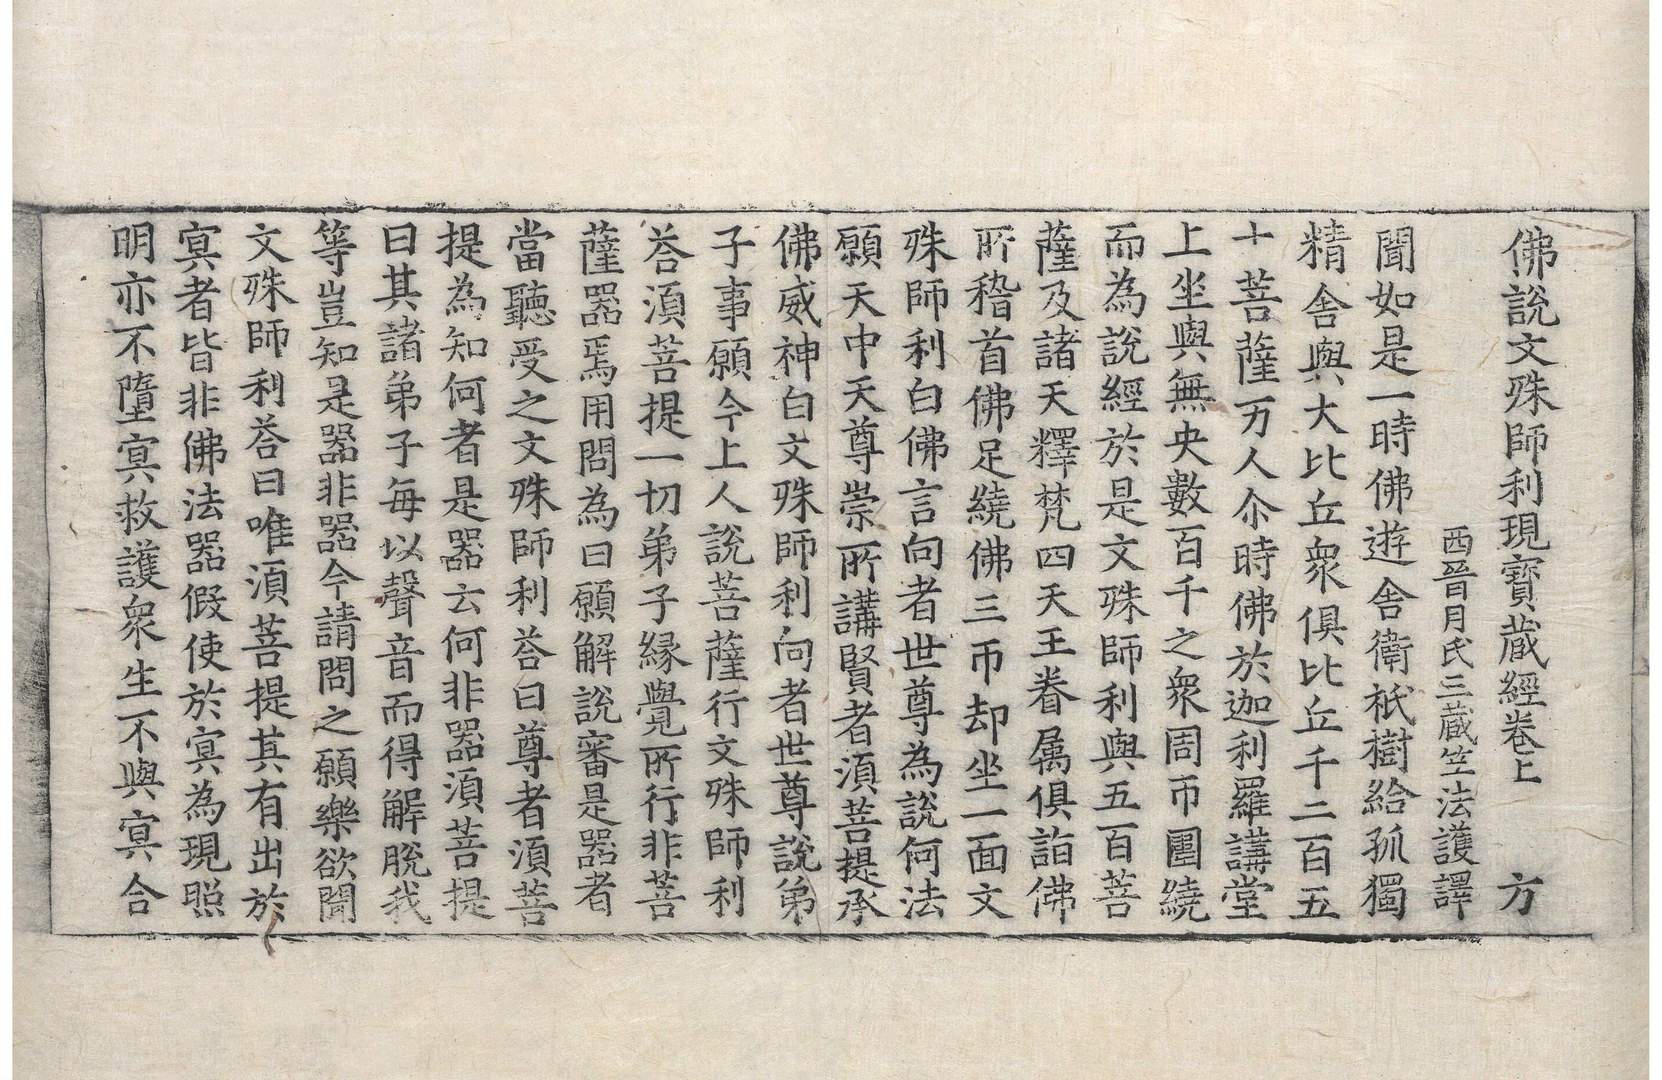 佛說文殊師利現寶藏經卷上 方
西晉月氏三藏竺法護譯
聞如是一時佛遊舍衛祇樹給孤獨
精舍與大比丘衆俱比丘千二百五
十菩薩万人尒時佛於迦利羅講堂
上坐與無央數百千之衆周帀圍繞
而為說經於是文殊師利與五百菩
薩及諸天釋梵四天王眷属俱詣佛
所稽首佛足繞佛三帀却坐一面文
殊師利白佛言向者世尊為說何法
願天中天尊崇所講賢者湏菩提承
佛威神白文殊師利向者世尊說弟
子事願今上人說菩薩行文殊師利
荅湏菩提一切弟子緣覺所行非菩
薩器焉用問為曰願解說審是器者
當聽受之文殊師利荅曰尊者湏菩
提為知何者是器云何非器湏菩提
曰其諸弟子每以聲音而得解脫我
等豈知是器非器今請問之願樂欲聞
文殊師利荅曰唯湏菩提其有出於
冥者皆非佛法器假使於冥為現照
明亦不墮冥救護衆生不與冥合